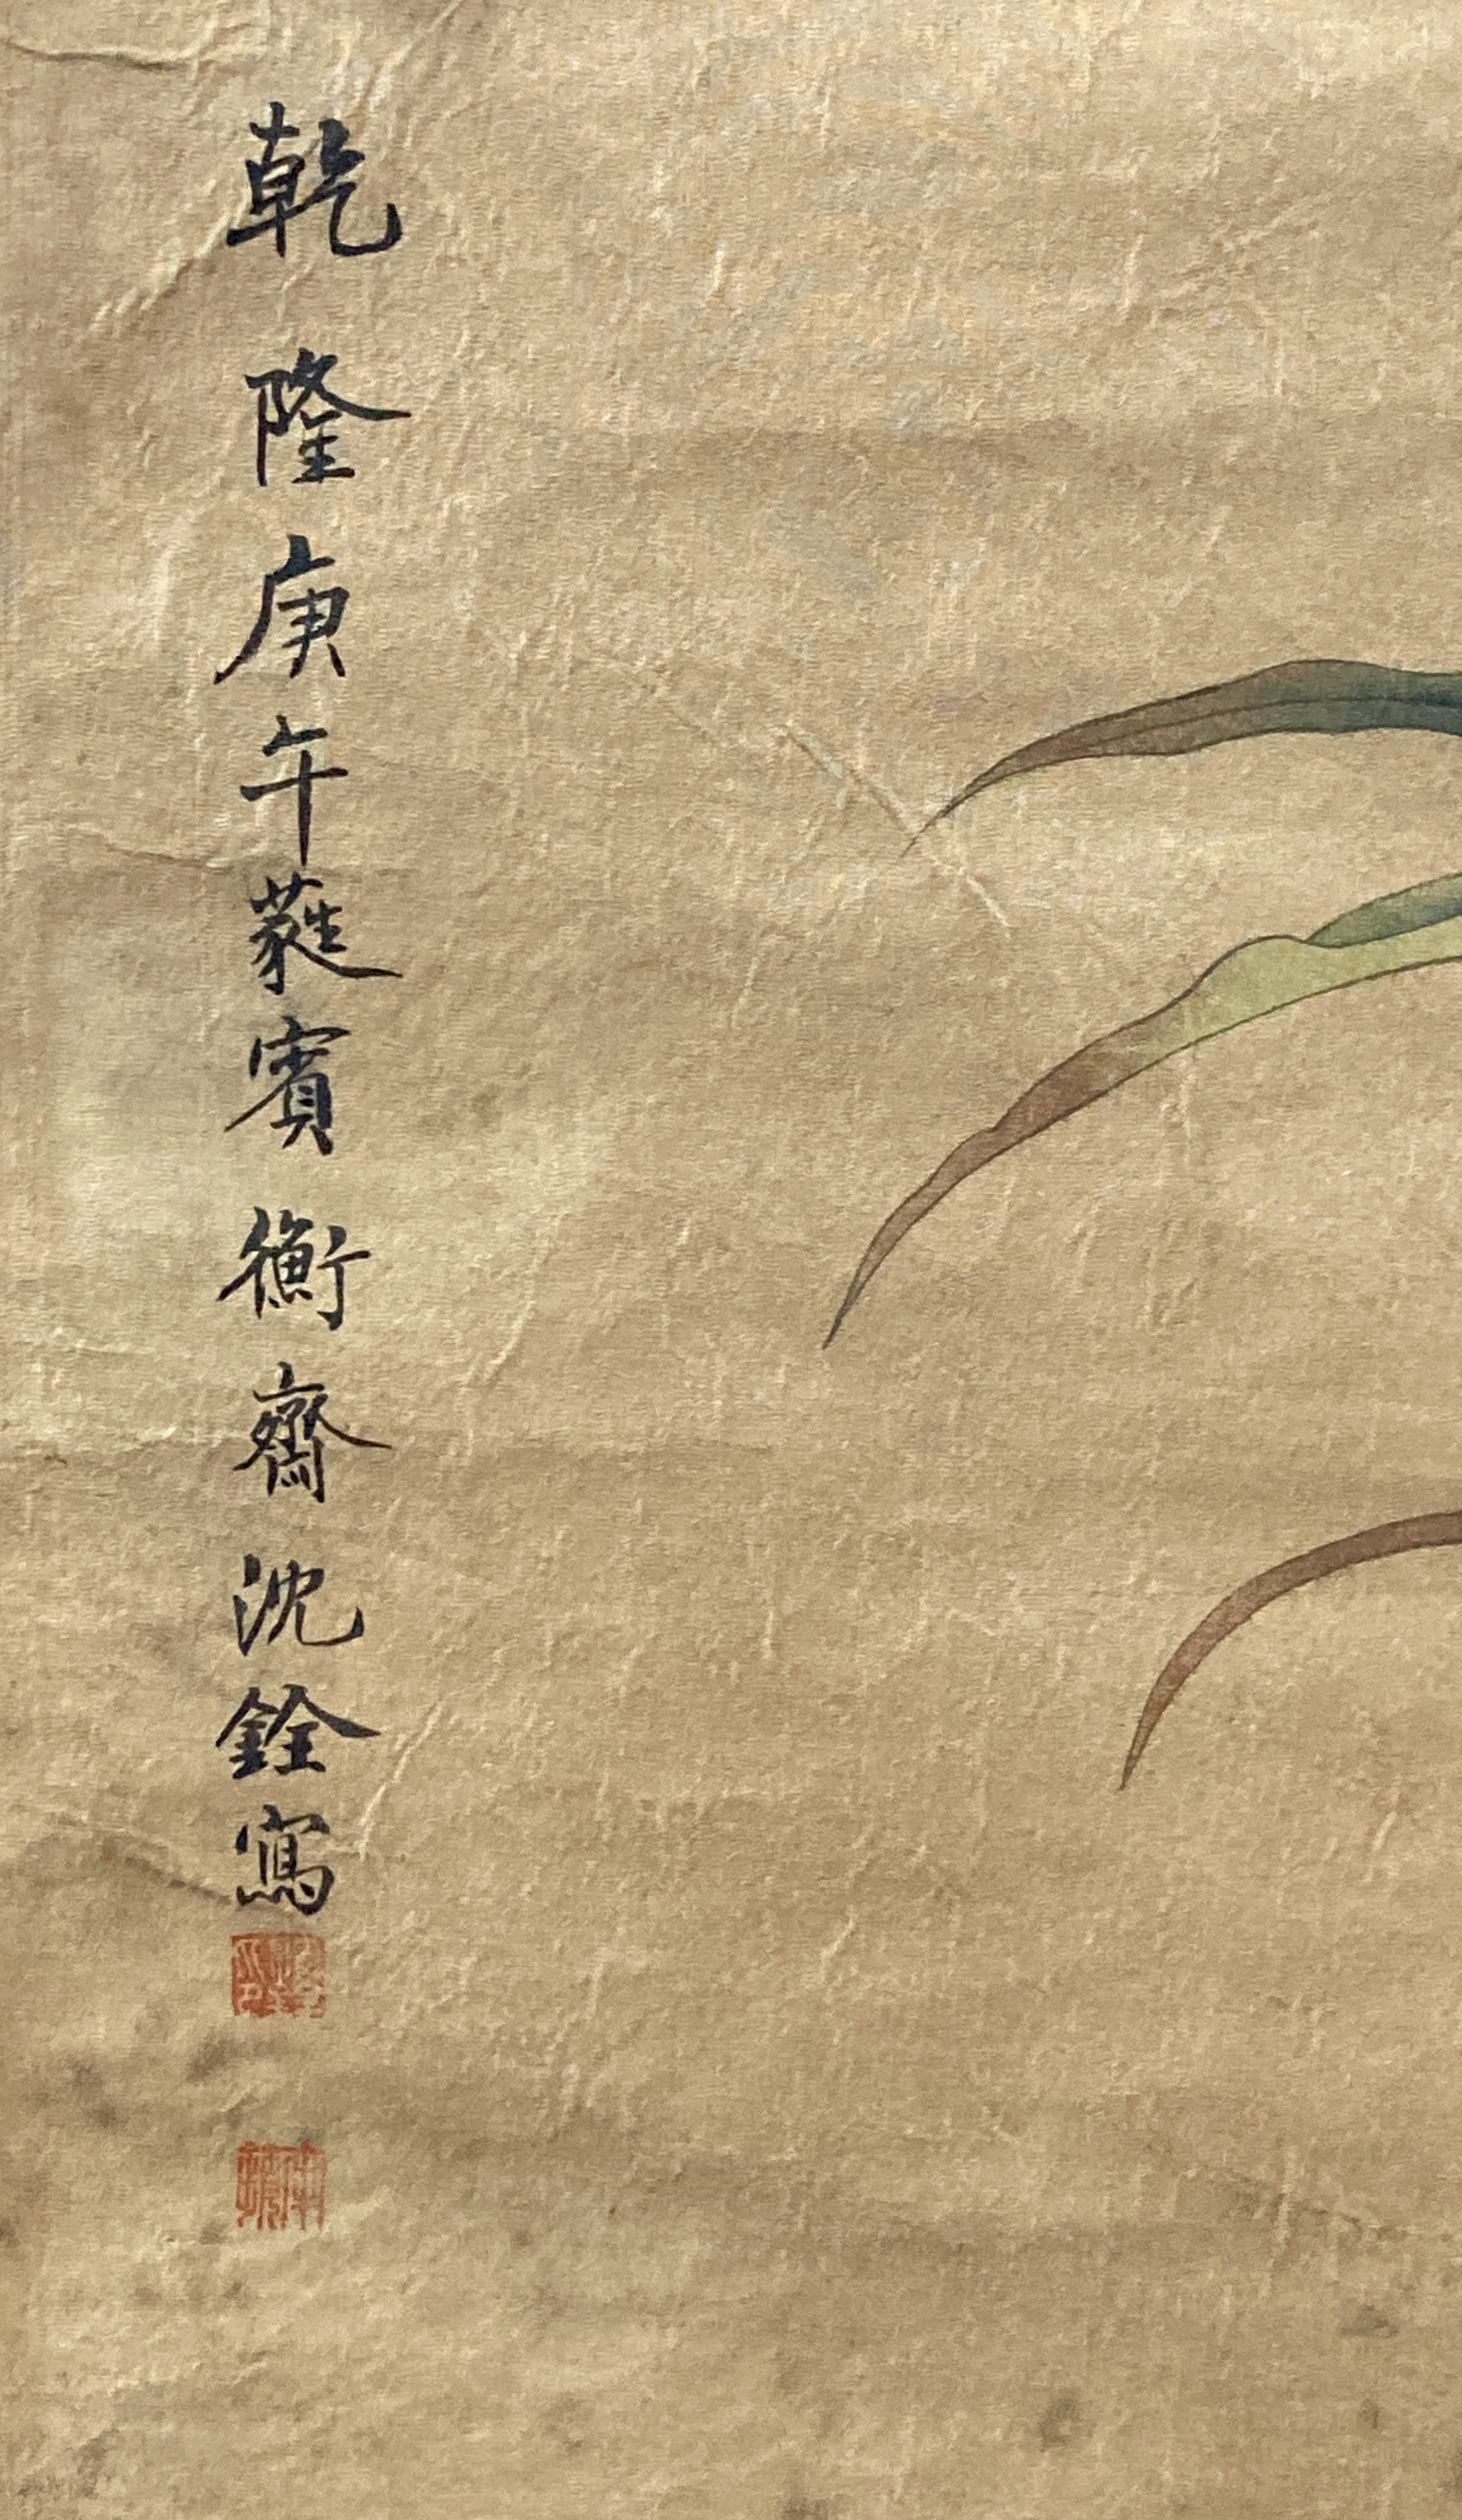 乾隆庚午蕤賓衡齋沈銓寫